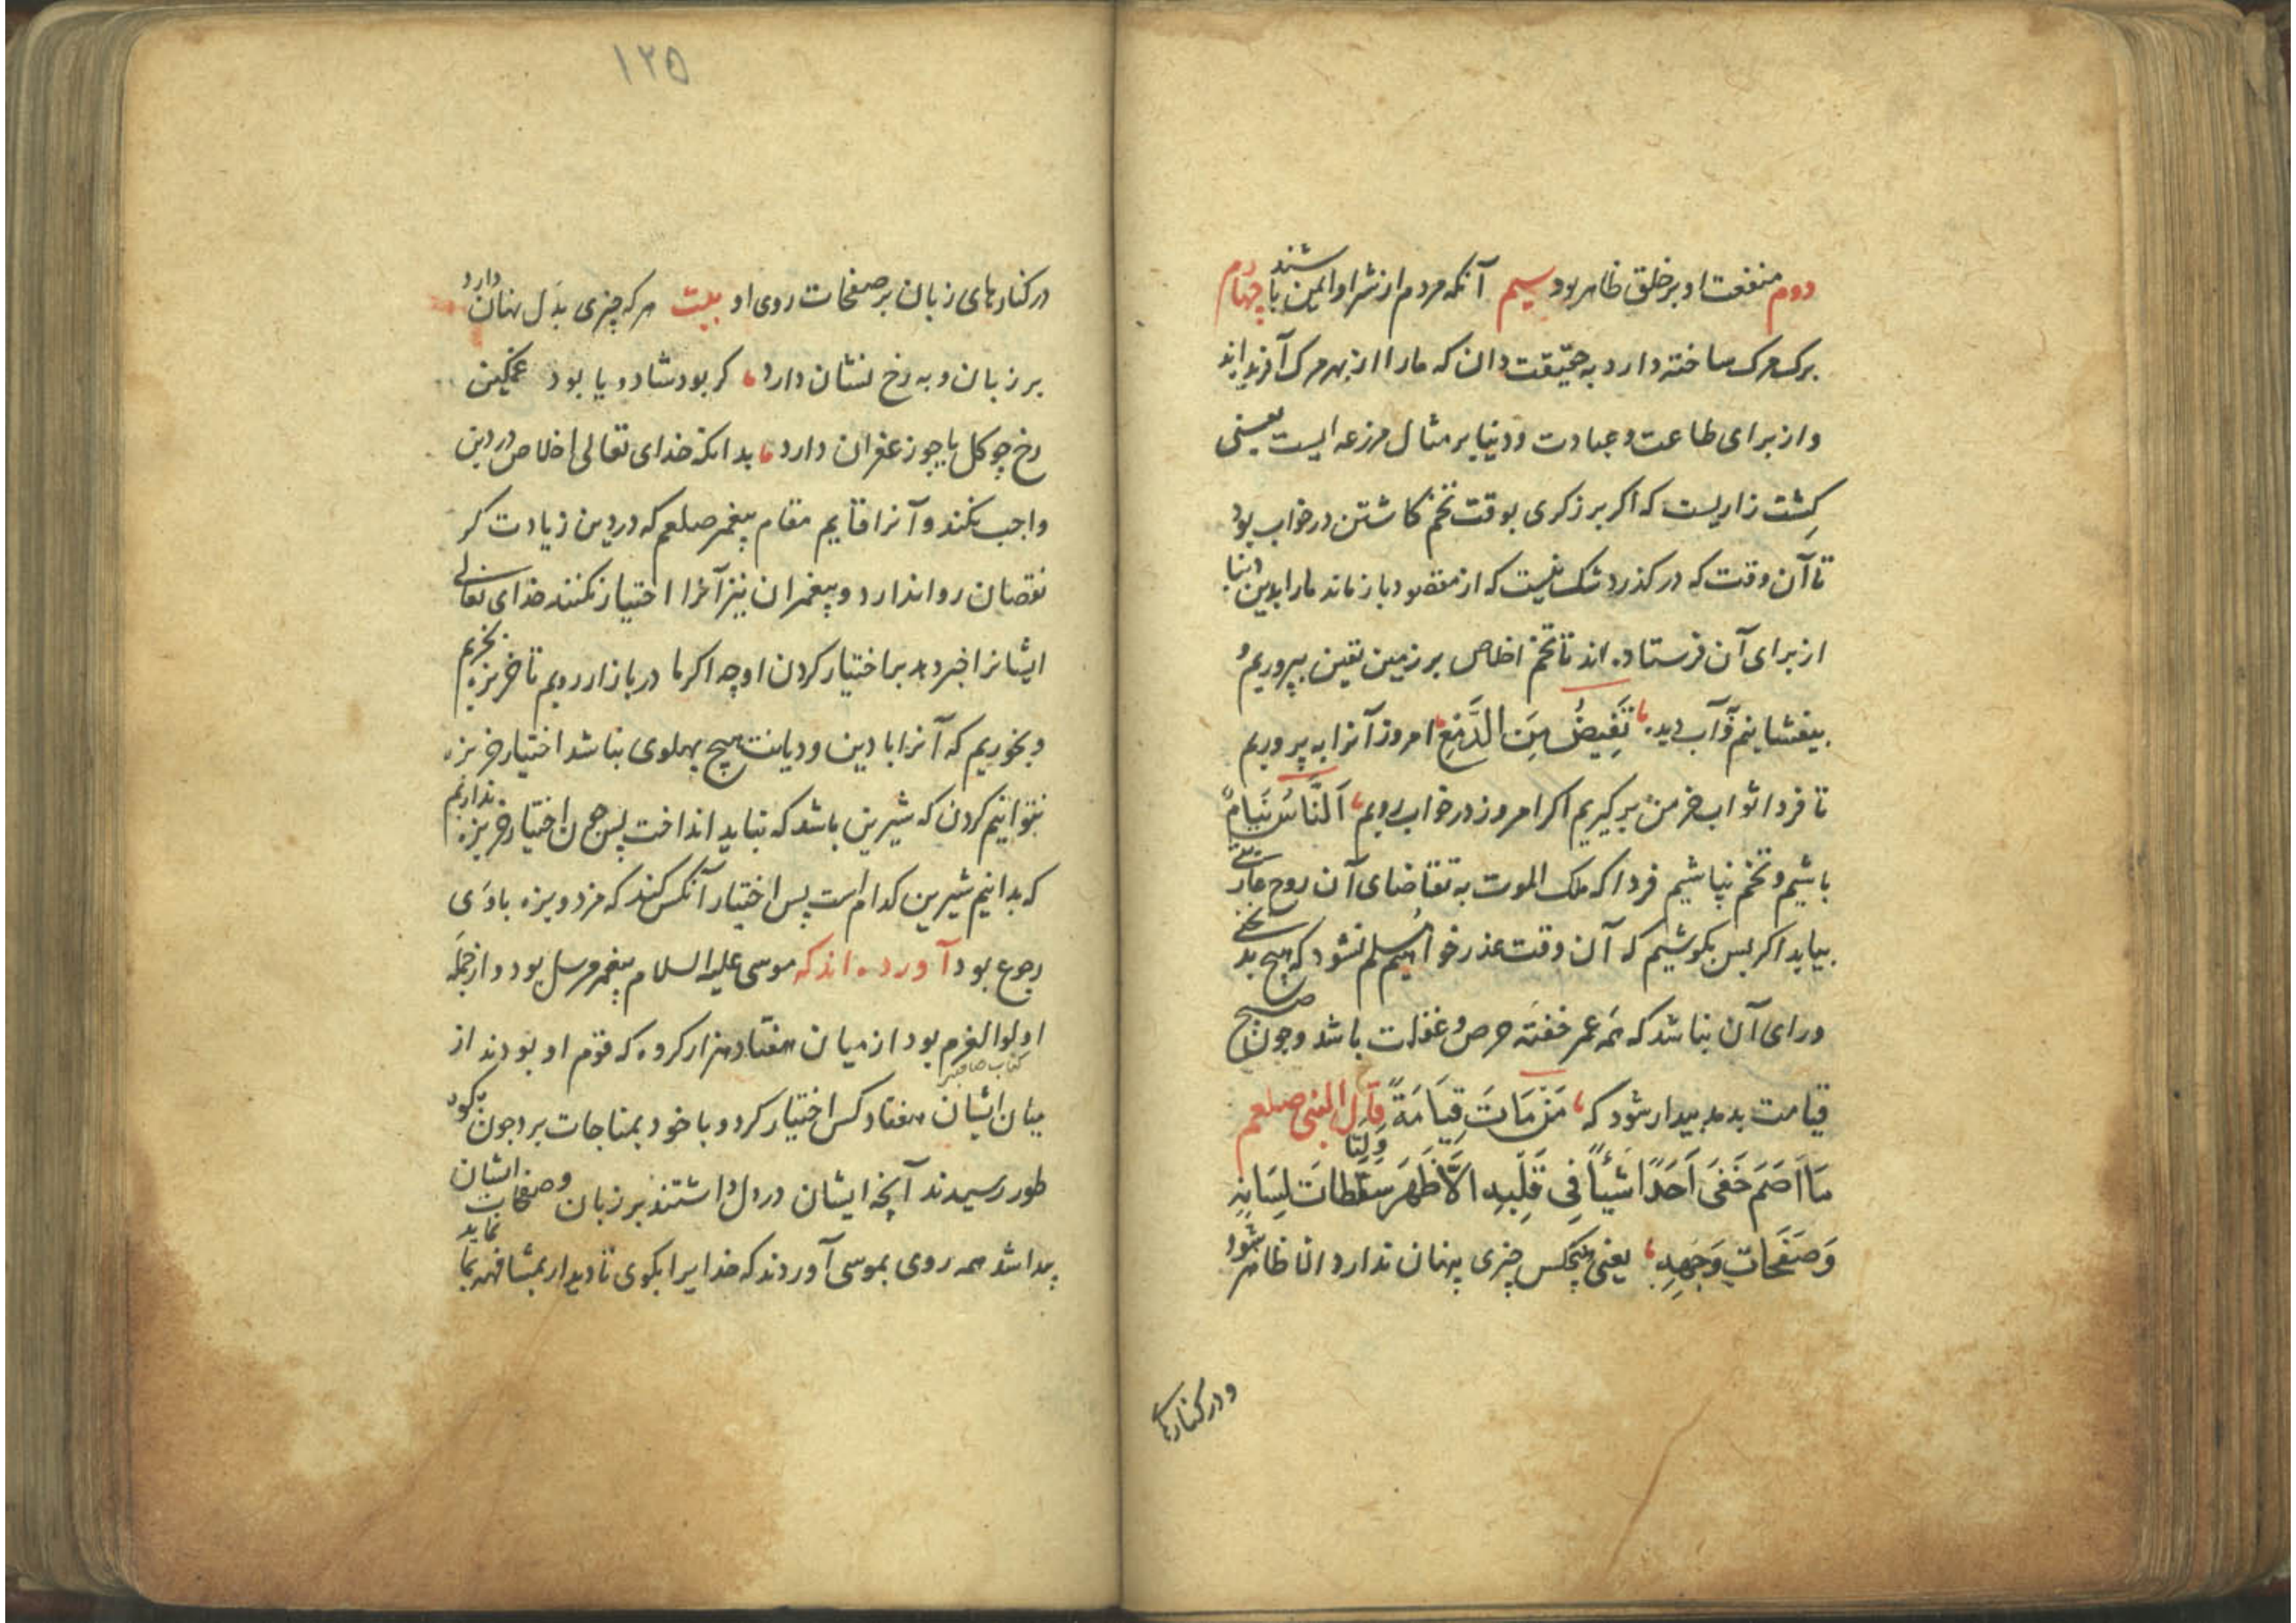 دوم منفعت او بر خلق ظاهر بود سیم آنکه مردم از شر او ایمن باشند چهارم
برک مرک ساخته دارد به حقیقت دان که ما را از بهر مرک آفریده‌اند
و از برای طاعت و عبادت و دنیا بر مثال مزرعه ایست یعنی
کِشت زاریست که اکر برزکری بوقت تخم کاشتن در خواب بود
تا آن وقت که در کذرد شک نیست که از مقصود باز ماند ما را بدین دنیا
از برای آن فرستاده اند تا تخم اخلاص بر زمین یقین بپروریم و
بیفشانیم و آب دیده تَفِیضُ مِنَ الدَّمْعِ امروز آنرا به پروریم
تا فردا ثواب خرمن بر کیریم اکر امروز در خواب رویم اَلنَّاسُ نِیَامٌ
باشیم و تخم نپاشیم فردا که ملک الموت به تقاضای آن روح عاریتی
بیاید اکر بس بکوشیم که آن وقت عذر خواهیم مسلم نشود که هیچ بدبختی
ورای آن نباشد که همه عمر خفته حرص و غفلت باشد و چون صبح
قیامت بدمد بیدار شود که مَنْ مَاتَ قِیَامَةً قال النبی صلعم
مَا اَصَمَ خَفَیَ اَحَدًا شَیْأً فِی قَلْبِهِ اِلاَّ ظَهَرَ سَقَطَاتَ لِسَانِهِ
وَصَفَحَاتِ وَجْهِهِ یعنی هیچکس چیزی پنهان ندارد الا ظاهر شود
و در کنارهای
۱۲۵
در کنارهای زبان بر صفحات روی او بیت هر که چیزی بدل نهان دارد
بر زبان و به رخ نشان دارد کر بود شاد و یا بود غمکین
رخ چو کل یا چو زعفران دارد بدانکه خدای تعالی اخلاص در دین
واجب بکند و آنرا قایم مقام پیغمبر صلعم که در دین زیادت کر
نقصان روا ندارد و پیغمبران نیز آنرا اختیار نکنند خدای تعالی
ایشانرا خبر دهد بر اختیار کردن او چه اکر ما در بازار رویم تا خربزه بخریم
و بخوریم که آنرا با دین و دیانت هیچ پهلوی نباشد اختیار خربزه
نتوانیم کردن که شیرین باشد که نباید انداخت پس چون اختیار خربزه نداریم
که بدانیم شیرین کدام است پس اختیار آنکس کند که مزد و بزه با وی
رجوع بود آورده اند که موسی علیه السلام پیغمبر مرسل بود و از جمله
اولوا العزم بود از میان هفتاد هزار کروه که قوم او بودند از
میان ایشان هفتاد کس اختیار کرد و با خود بمناجات برد چون بکوه
طور رسیدند آنچه ایشان در دل داشتند بر زبان و صفحات ایشان
پیدا شد همه روی بموسی آوردند که خدایرا بکوی تا دیدار بمشافهه بما نماید